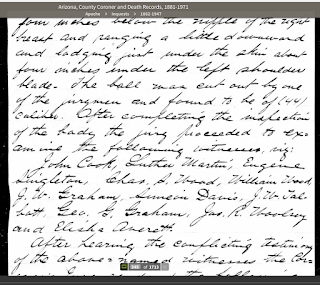 Arizona, County Coroner and Death Records, 1881-1971
Apache > Inquests > 1882-1947
four inches below the nipple of the right
breast and ranging a little downward
and lodging just under the skin about
four inches under the left shoulder
blade. The ball was cut out by one
of the jurymen and found to be of (44)
caliber. After completing the inspection
of the body the jury proceeded to ex-
amine the following witnesses, viz:
John Cook, Luther Martin, Eugene
Singleton, Chas. S. Wood, William Wood,
J. W. Graham, Simeon Davis, J. W. Tal-
bott, Geo. E. Graham, Jas. R. Woolsey
and Elisha Averett.
After hearing the conflicting testimony
of the above named witnesses the Cor-
of 1713